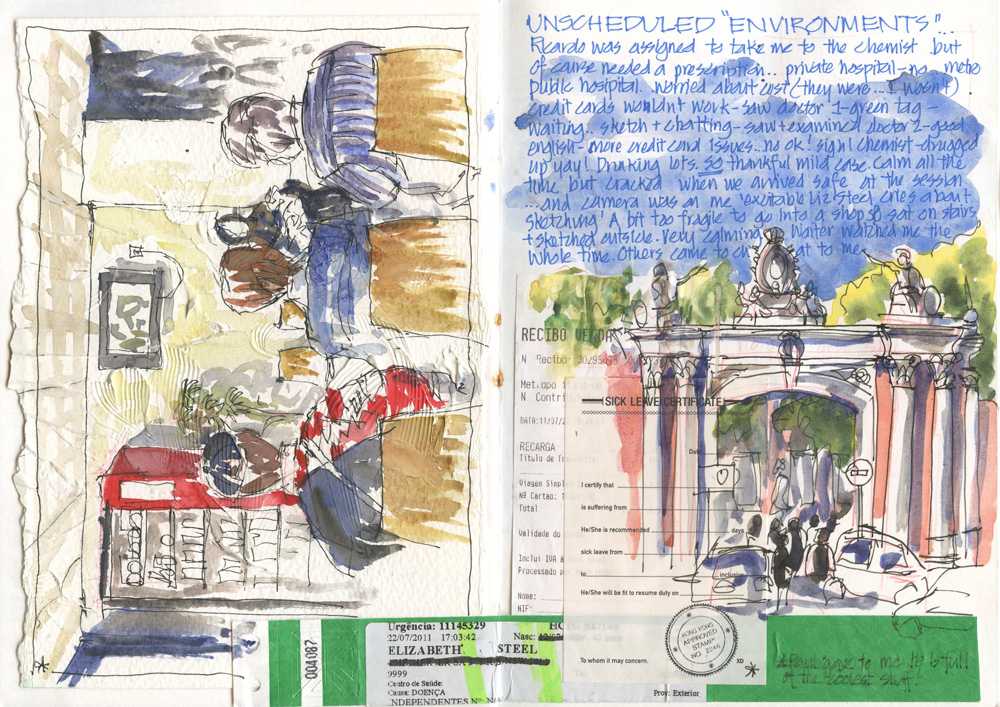 UNSCHEDULED "ENVIRONMENTS"...
Ricardo was assigned to take me to the chemist but
of course needed a prescription.. private hospital-no.. metro
public hospital. Worried about cost (they were... I wasn't)
credit cards wouldn't work-saw doctor 1-green tag-
waiting.. sketch + chatting-saw+examined doctor 2-good
english-more credit card issues...no ok! sign! chemist-drugged
up yay! Drinking lots. SO thankful mild case. Calm all the
time, but cracked when we arrived safe at the session
...and camera was on me 'excitable Liz Steel cries about
sketching'! A bit too fragile to go into a shop so sat on stairs
+ sketched outside. Very calming. Waiter watched me the
whole time. Others came to ch at to me.
RECIBO VENDA
N Recibo: 30295078
Metropo
N Contri
DATA:11/07/2
RECARGA
Título de
Viagem Simpl
Nº Cartao:
Total
Validade do
Inclui IVA à
Processado po
Nome:
NIF:
SICK LEAVE CERTIFICATE
Date
I certify that
is suffering from
He/She is recommended days
sick leave from
to inclusive
He/She will be fit to resume duty on
HONG KONG
APPROVED
STAMP
NO 2246
To whom it may concern. XD
004087
Urgência: 11145329 HO
22/07/2011 17:03:42 Nasc:
ELIZABETH STEEL
9999
Centro de Saúde:
Causa: DOENÇA
INDEPENDENTES Nº:
Prov: Exterior
*Paul gave to me. He is full
of the coolest stuff!